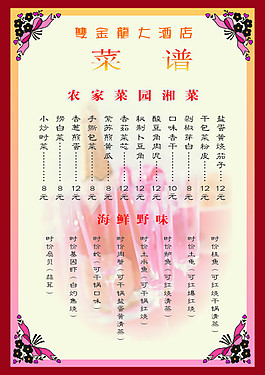 雙金龍大酒店
菜 谱
农家菜园湘菜
小炒时菜 8元
捞白菜 8元
香葱煎蛋 12元
手撕包菜 8元
紫苏煎黄瓜 8元
香菇菜芯 12元
秘制卜豆角 12元
酸豆角肉泥 12元
口味香干 10元
剁椒芽白 8元
干包菜粉皮 12元
盐蛋黄烧茄子 12元
海鲜野味
时价桂鱼（可红烧清蒸）
时价土龟（可红烧干锅）
时价土鸡（可爆红烧）
时价鲈鱼（可红烧清蒸）
时价土水鱼（可干锅红烧）
时价肉蟹（可干锅盐蛋黄清蒸）
时价蛇（可干锅口味）
时价基因虾（白灼焦烧）
时价扇贝（蒜茸）